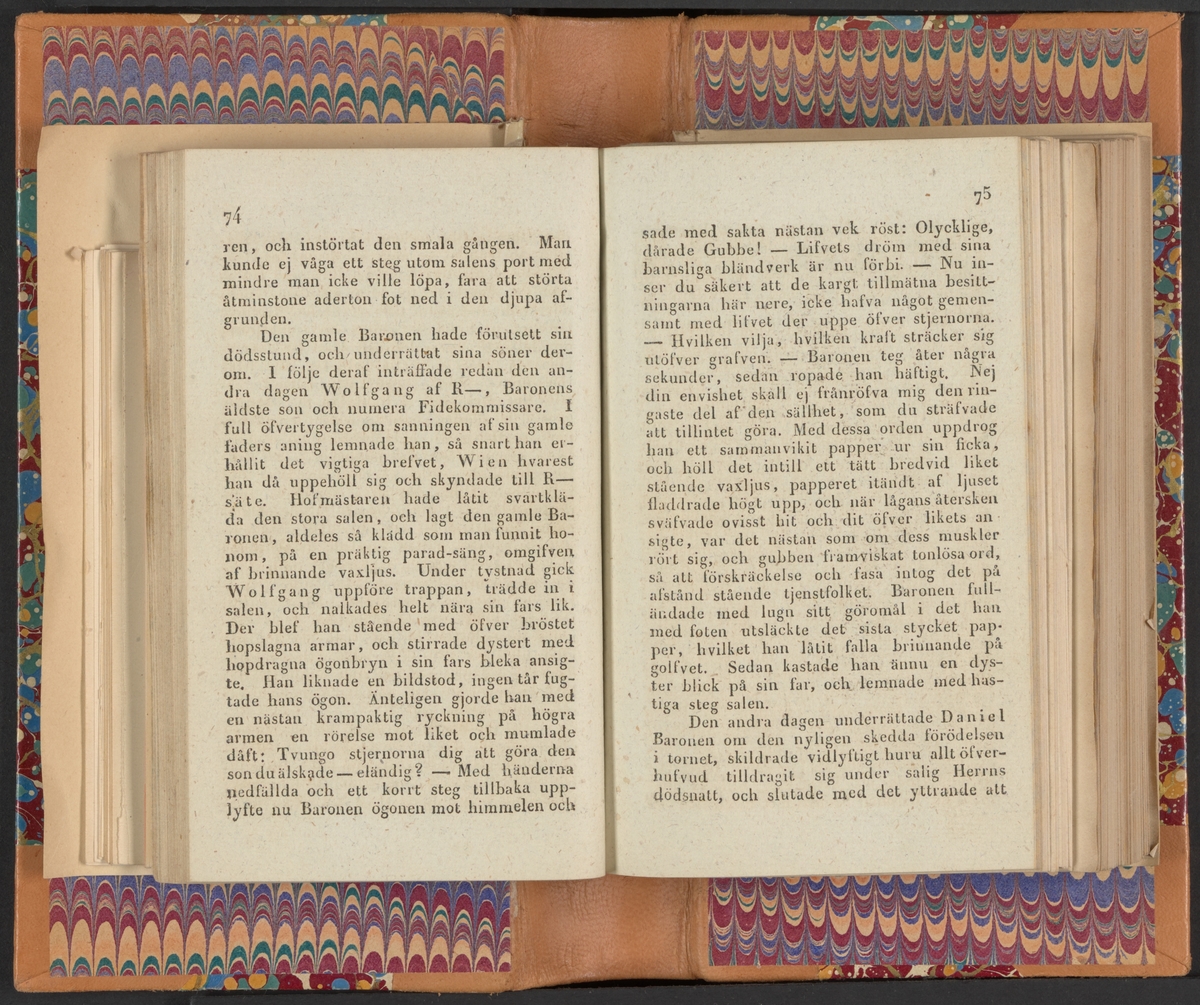 74
ren, och instörtat den smala gången. Man
kunde ej våga ett steg utom salens port med
mindre man icke ville löpa, fara att störta
åtminstone aderton fot ned i den djupa af-
grunden.
Den gamle Baronen hade förutsett sin
dödsstund, och underrättat sina söner der-
om. I följe deraf inträffade redan den an-
dra dagen Wolfgang af R—, Baronens
äldste son och numera Fidekommissare. I
full öfvertygelse om sanningen af sin gamle
faders aning lemnade han, så snart han er-
hållit det vigtiga brefvet, Wien hvarest
han då uppehöll sig och skyndade till R—
säte. Hofmästaren hade låtit svartklä-
da den stora salen, och lagt den gamle Ba-
ronen, aldeles så klädd som man funnit ho-
nom, på en präktig parad-säng, omgifven
af brinnande vaxljus. Under tystnad gick
Wolfgang uppföre trappan, trädde in i
salen, och nalkades helt nära sin fars lik.
Der blef han stående med öfver bröstet
hopslagna armar, och stirrade dystert med
hopdragna ögonbryn i sin fars bleka ansig-
te. Han liknade en bildstod, ingen tår fug-
tade hans ögon. Änteligen gjorde han med
en nästan krampaktig ryckning på högra
armen en rörelse mot liket och mumlade
dåft: Tvungo stjernorna dig att göra den
son du älskade — eländig? — Med händerna
nedfällda och ett korrt steg tillbaka upp-
lyfte nu Baronen ögonen mot himmelen och
75
sade med sakta nästan vek röst: Olycklige,
dårade Gubbe! — Lifvets dröm med sina
barnsliga bländverk är nu förbi. — Nu in-
ser du säkert att de kargt tillmätna besitt-
ningarna här nere, icke hafva något gemen-
samt med lifvet der uppe öfver stjernorna.
— Hvilken vilja, hvilken kraft sträcker sig
utöfver grafven. — Baronen teg åter några
sekunder, sedan ropade han häftigt. Nej
din envishet skall ej frånröfva mig den rin-
gaste del af den sällhet, som du sträfvade
att tillintet göra. Med dessa orden uppdrog
han ett sammanvikit papper ur sin ficka,
och höll det intill ett tätt bredvid liket
stående vaxljus, papperet itändt af ljuset
fladdrade högt upp, och när lågans återsken
sväfvade ovisst hit och dit öfver likets an
sigte, var det nästan som om dess muskler
rört sig, och gubben framviskat tonlösa ord,
så att förskräckelse och fasa intog det på
afstånd stående tjenstfolket. Baronen full-
ändade med lugn sitt göromål i det han
med foten utsläckte det sista stycket pap-
per, hvilket han låtit falla brinnande på
golfvet. Sedan kastade han ännu en dys-
ter blick på sin far, och lemnade med has-
tiga steg salen.
Den andra dagen underrättade Daniel
Baronen om den nyligen skedda förödelsen
i tornet, skildrade vidlyftigt huru allt öfver-
hufvud tilldragit sig under salig Herrns
dödsnatt, och slutade med det yttrande att